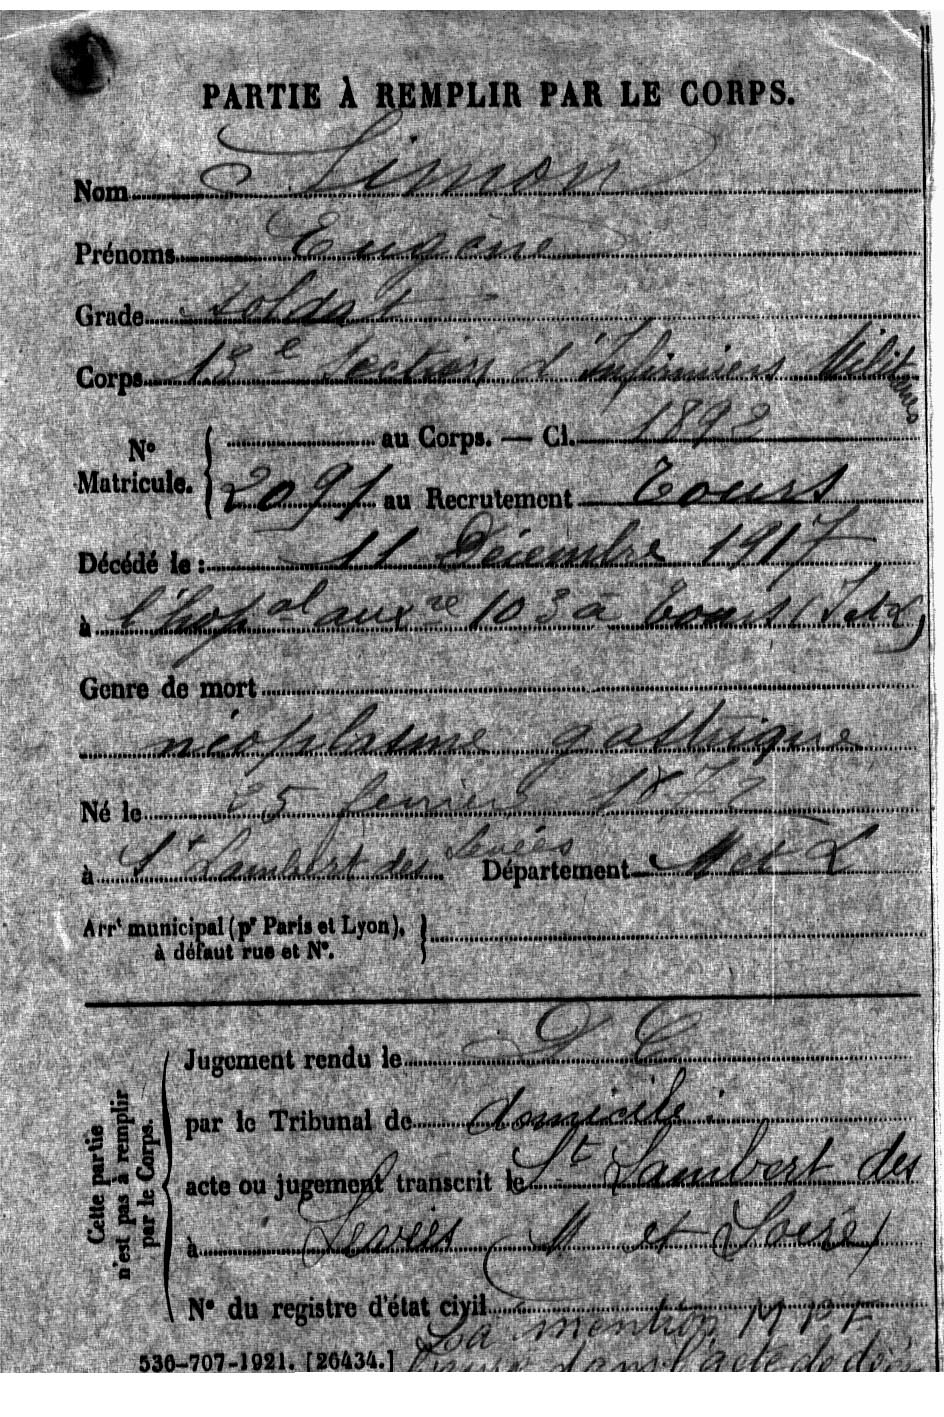 PARTIE À REMPLIR PAR LE CORPS.
Nom Simon
Prénoms Eugène
Grade soldat
Corps 13e Section d'Infirmiers Militaires
No Matricule. { au Corps. — Cl. 1892
2091 au Recrutement Tours
Décédé le : 11 Décembre 1917
à l'hopal auxre 103 à Tours (I et L)
Genre de mort
néoplasme gastrique
Né le 25 fevrier 1872
à St Lambert des Levées Département M et L
Arrt municipal (pr Paris et Lyon), à défaut rue et No. }
Cette partie n'est pas à remplir par le Corps.
Jugement rendu le D C
par le Tribunal de domicile :
acte ou jugement transcrit le St Lambert des
à Levées (M et Loire)
No du registre d'état civil
La mention M P F
dans l'acte de décès
536-707-1921. [26434.]